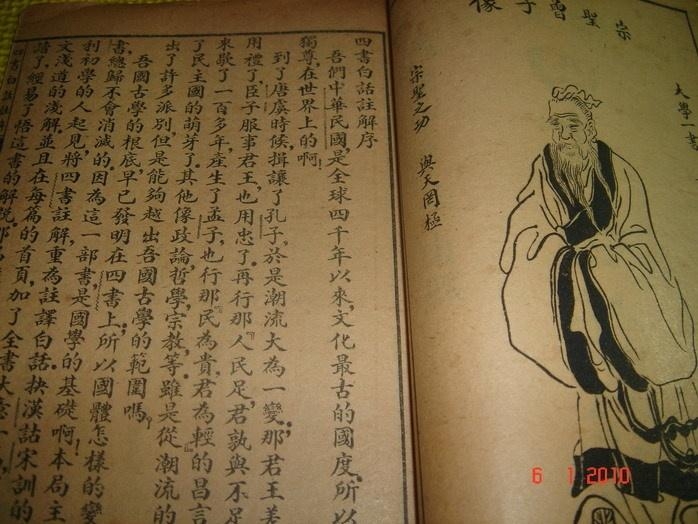 宗聖曾子像
大學一書
宗聖之功 與天罔極
四書白話註解序
吾們中華民國是全球四千年以來,文化最古的國度。所以
獨尊在世界上的啊!
到了唐虞時候,揖讓了孔子,於是潮流大為一變,那君王善
用禮了,臣子服事君王,也用忠了。再行那『人民足,君孰與不足
來歇了一百多年,產生了孟子,也行那『民為貴,君為輕』的昌言
了民主國的萌芽了。其他像政論,哲學,宗教,等,雖是從潮流的
出了許多派別,但是能夠越出吾國古學的範圍嗎?
吾國古學的根底,早已發明在四書上,所以國體怎樣的變
書,總歸不會消滅的,因為這一部書,是國學的基礎啊!本局主
利初學的人起見,將四書註解,重為註譯白話,抉漢詁宋訓的
文淺道的淺解,並且在每篇的首頁,加了全書大意
了,經易了悟這書的解說,那
四書白話註解
6 1 2010